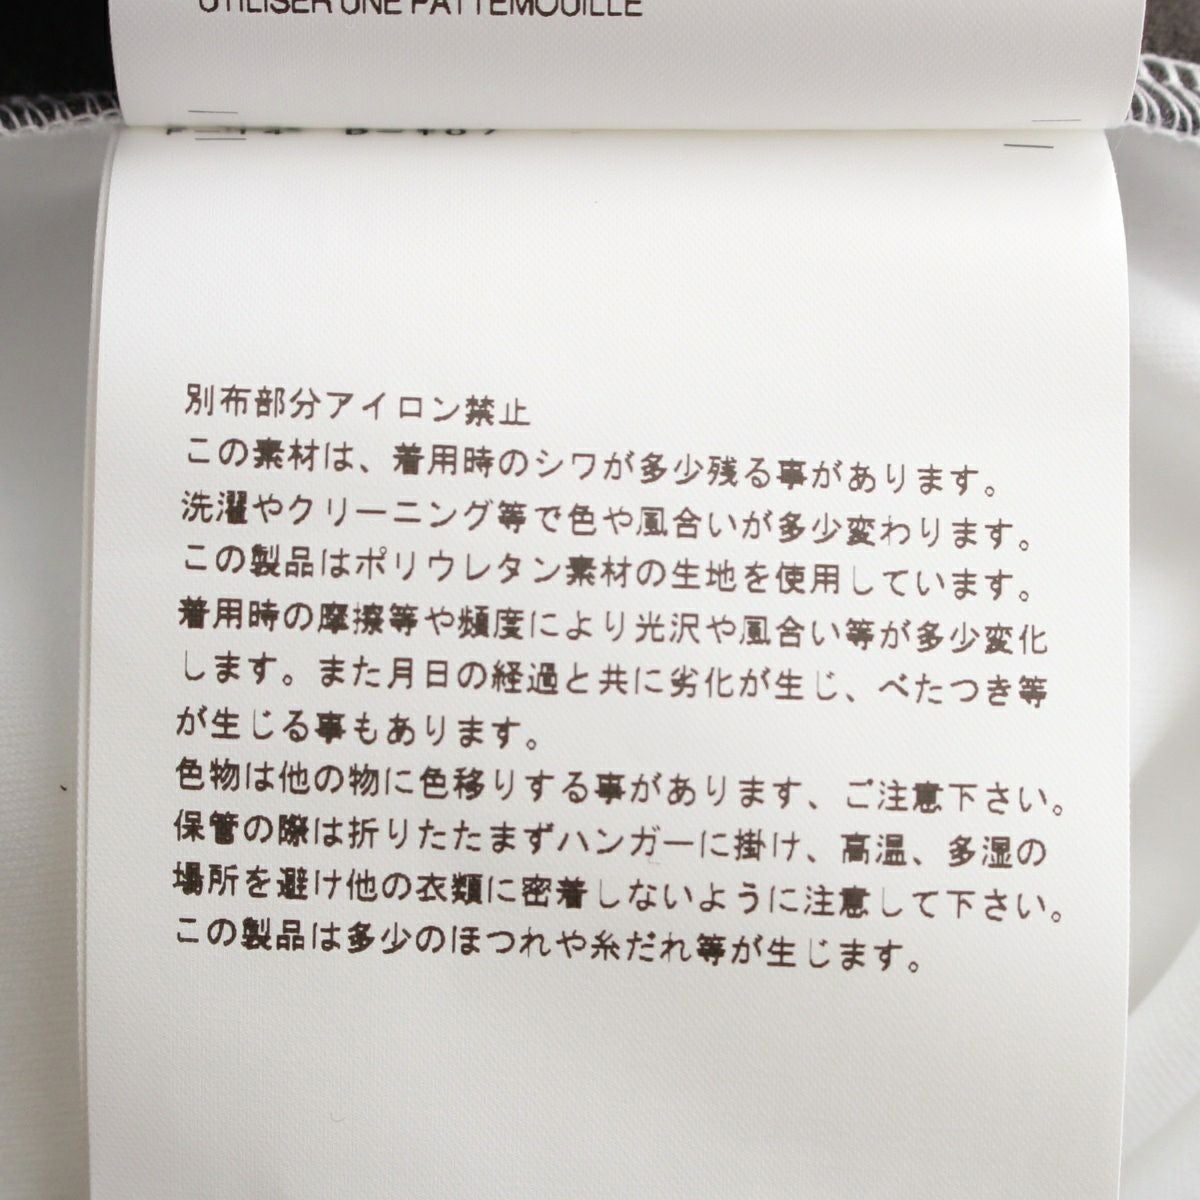 UTILISER UNE PATTEMOUILLE
別布部分アイロン禁止
この素材は、着用時のシワが多少残る事があります。
洗濯やクリーニング等で色や風合いが多少変わります。
この製品はポリウレタン素材の生地を使用しています。
着用時の摩擦等や頻度により光沢や風合い等が多少変化
します。また月日の経過と共に劣化が生じ、べたつき等
が生じる事もあります。
色物は他の物に色移りする事があります、ご注意下さい。
保管の際は折りたたまずハンガーに掛け、高温、多湿の
場所を避け他の衣類に密着しないように注意して下さい。
この製品は多少のほつれや糸だれ等が生じます。